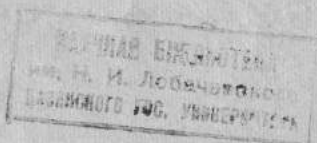 НАУЧНАЯ БИБЛИОТЕКА
им. Н. И. Лобачевского
КАЗАНСКОГО ГОС. УНИВЕРСИТЕТА